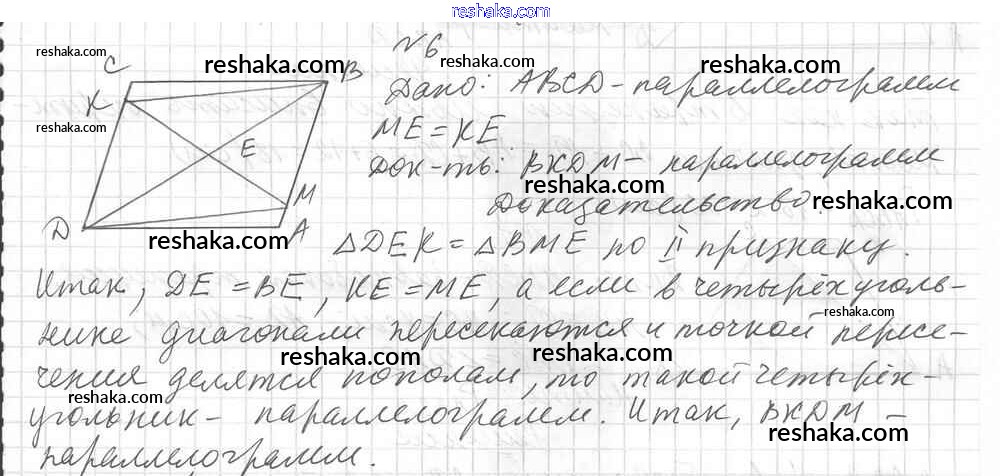 reshaka.com
N 6
reshaka.com
C
reshaka.com
B
reshaka.com
K
Дано: ABCD - параллелограмм
reshaka.com
ME = KE
E
Док-ть: BKDM - параллелограмм
reshaka.com
M
Доказательство:
D
A
reshaka.com
△DEK = △BME по II признаку.
Итак, DE = BE, KE = ME, а если в четырёхуголь-
reshaka.com
нике диагонали пересекаются и точкой пересе-
reshaka.com
reshaka.com
чения делятся пополам, то такой четырёх-
угольник - параллелограмм. Итак, BKDM -
reshaka.com
параллелограмм.
reshaka.com